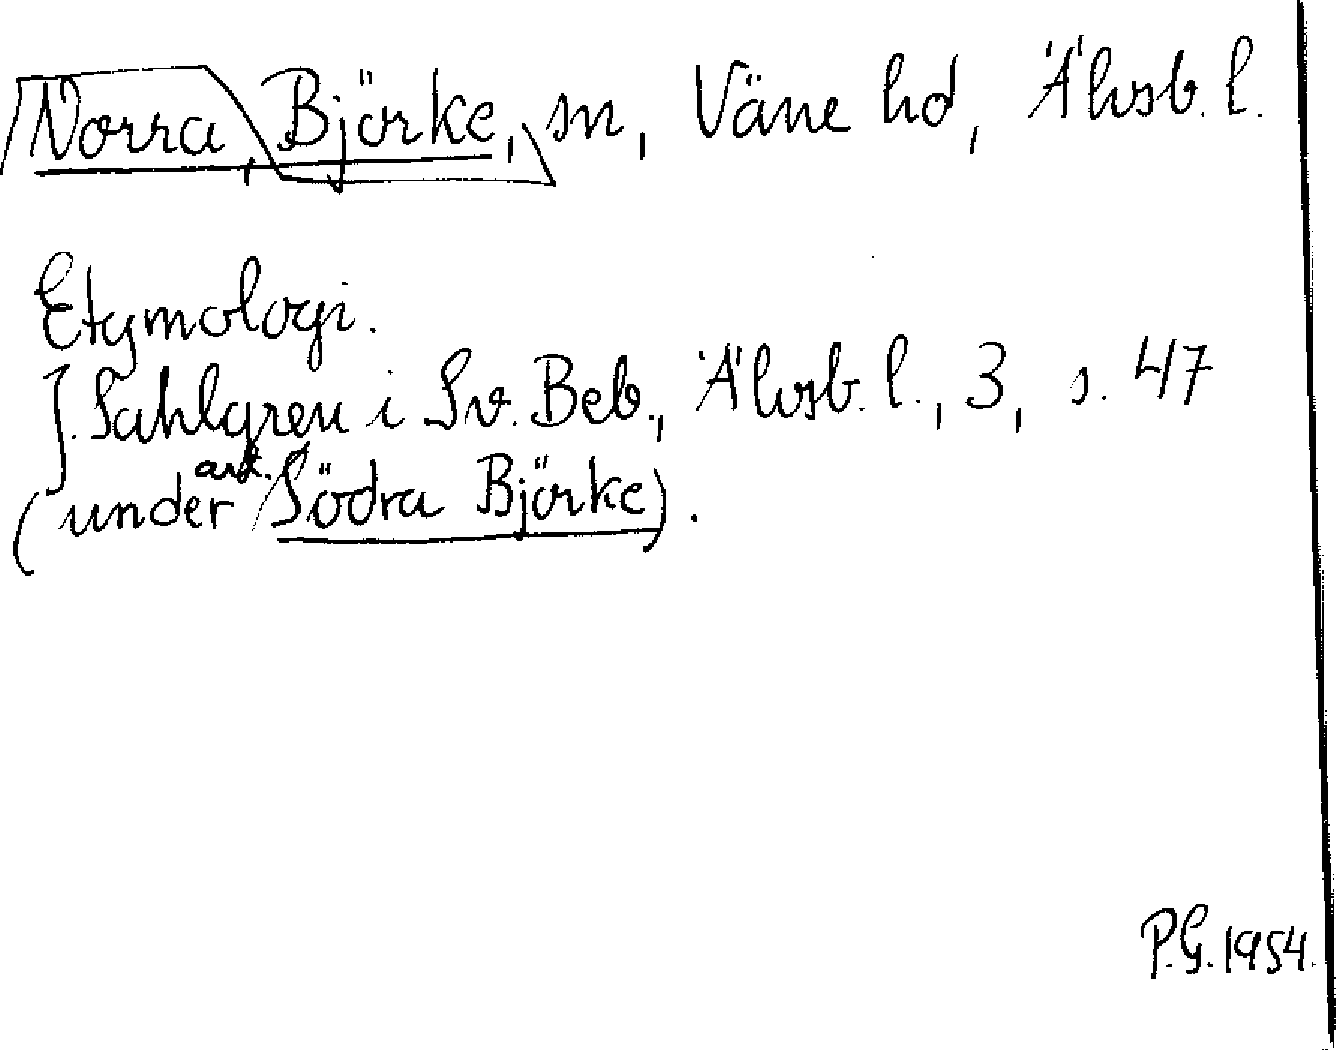 Norra, Björke, sn, Väne hd, Älvsb. l.
Etymologi.
J. Sahlgren i Sv. Beb., Älvsb. l., 3, s. 47
(under art. Södra Björke).
P.G. 1954.